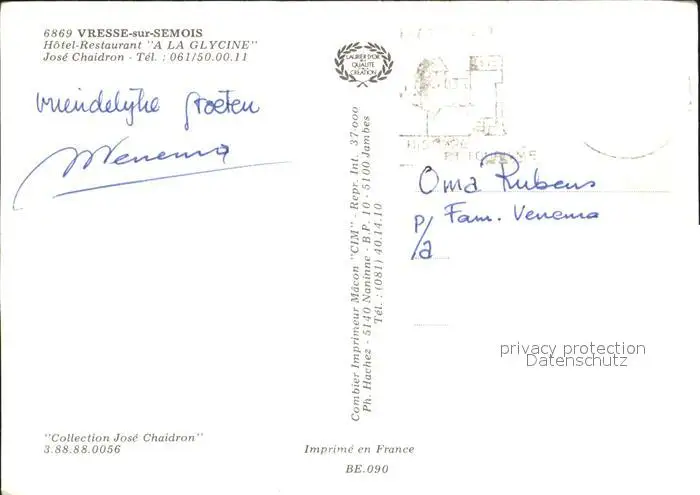 6869 VRESSE-sur-SEMOIS
Hôtel-Restaurant "A LA GLYCINE"
José Chaidron - Tél. : 061/50.00.11
vriendelijke groeten
Venema
LAURIER D'OR
DE LA
QUALITÉ
DE LA
CRÉATION
Combier Imprimeur Mâcon "CIM" - Repr. Int. 37 000
Ph. Hachez - 5140 Naninne - B.P. 10 - 5100 Jambes
Tél. : (081) 40.14.10
Oma Rubens
p/a Fam. Venema
privacy protection
Datenschutz
"Collection José Chaidron"
3.88.88.0056
Imprimé en France
BE.090